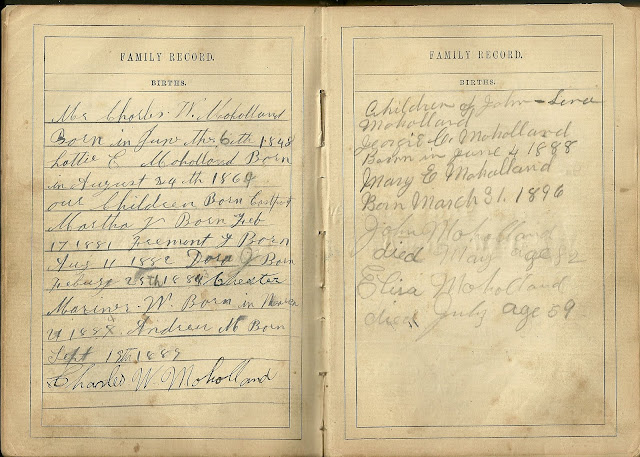 FAMILY RECORD.
BIRTHS.
Mr Charles W. Moholland
Born in June the 6th 1848
Lottie E Moholland Born
in August 24th 1869
our Children Born
Martha J Born Feb
17 1881 Fremont F Born
Aug 11 1882 Dora J Born
25th 1884 Chester
Mariner W. Born in
Andrew M Born
Sept 18th 1889
Charles W Moholland
FAMILY RECORD.
BIRTHS.
Children of John - Lena
Moholland
Georgie C. Moholland
Born in June 4 1888
Mary E Moholland
Born March 31. 1896
John Moholland
died May age 82
Eliza Moholland
died July age 59